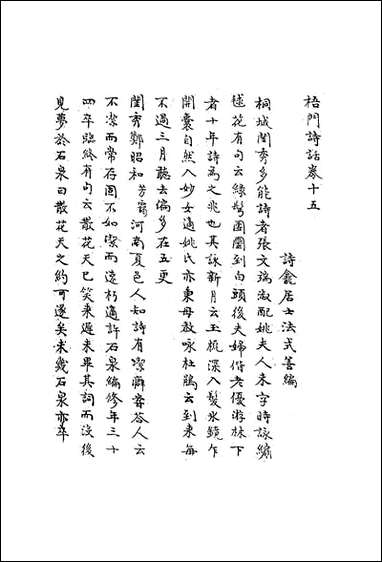 梧門詩話卷十五
詩龕居士法式善編
桐城閨秀多能詩者張文端淑配姚夫人未字時詠繡
毬花有句云綠髩團圞到白頭後夫婦偕老優游林下
者十年詩為之兆也其詠新月云玉梳深入髮水鏡乍
開奩自然入妙女適姚氏亦秉母教詠杜鵑云到來每
不過三月聽去偏多在五更
閨秀鄭昭和芳蘭河南夏邑人知詩有潔癖嘗答人云
不潔而常存固不如潔而速朽適許石泉編修年三十
四卒臨終有句云散花天已笑來遲未畢其詞而沒後
見夢於石泉曰散花天之約可遂矣未幾石泉亦卒